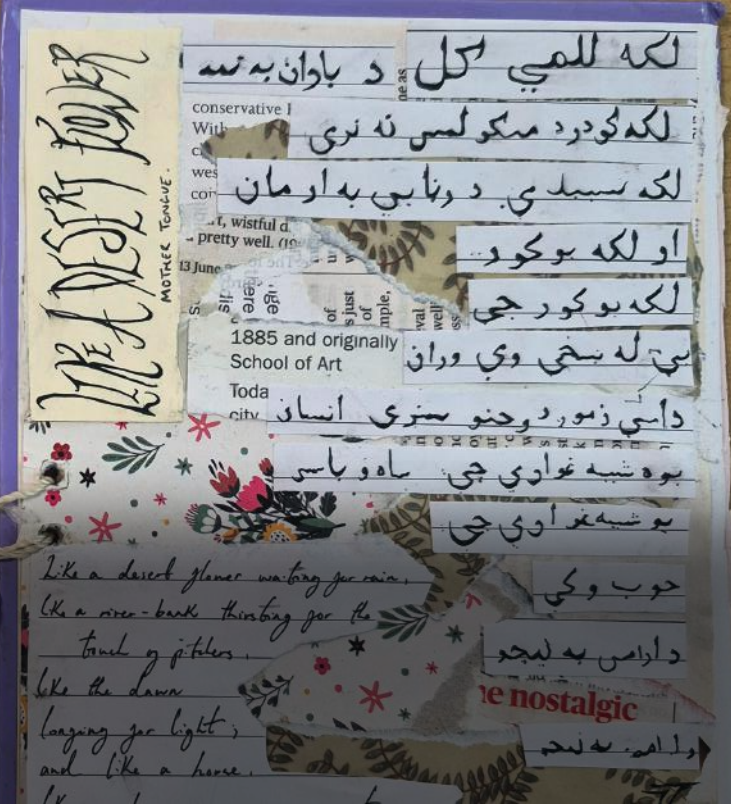 LIKE A DESERT FLOWER
MOTHER TONGUE.
لکه للمي گل د باران به تمه
لکه گودر د منگو لمس ته تږی
لکه سپیدې د رڼایې په ارمان
او لکه یو کور
لکه یو کور چې
بې له ښځې وي وران
داسې زموږ د وختو ستړی انسان
یوه شیبه غواړي چې ساه و باسي
یو شیبه غواړي چې
خوب وکي
د ارامۍ په لیچو
د ارامۍ په لیچو
conservative
With
wes
wistful
pretty well.
13 June
1885 and originally
School of Art
Toda
city
nostalgic
Like a desert flower waiting for rain,
like a river-bank thirsting for the
touch of pitchers,
like the dawn
longing for light;
and like a house,